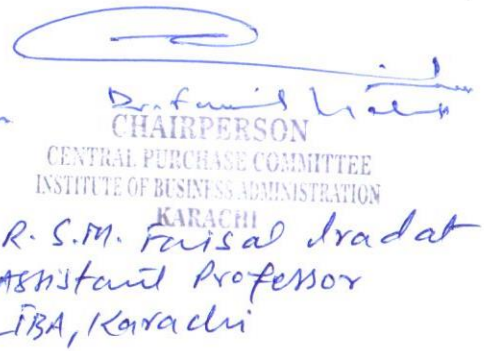 CHAIRPERSON
CENTRAL PURCHASE COMMITTEE
INSTITUTE OF BUSINESS ADMINISTRATION
KARACHI
R. S.M. Faisal Iradat
Assistant Professor
IBA, Karachi